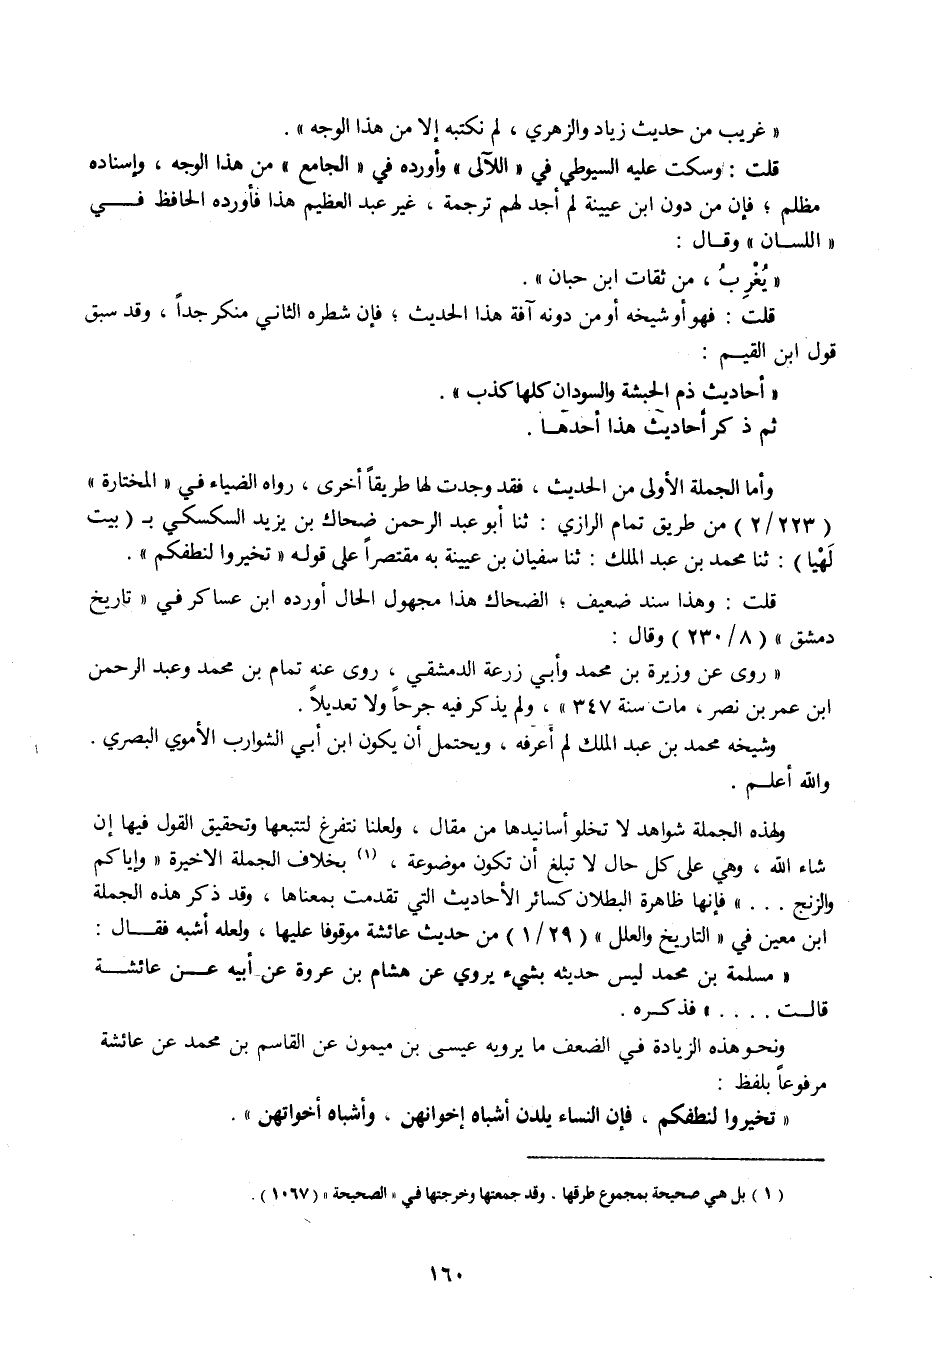 « غريب من حديث زياد والزهري ، لم نكتبه إلا من هذا الوجه » .
قلت : وسكت عليه السيوطي في « اللآلى » وأورده في « الجامع » من هذا الوجه ، وإسناده
مظلم ؛ فإن من دون ابن عيينة لم أجد لهم ترجمة ، غير عبد العظيم هذا فأورده الحافظ فـــي
« اللســان » وقــال :
« يُغْرِبُ ، من ثقات ابن حبان » .
قلت : فهو أو شيخه أو من دونه آفة هذا الحديث ؛ فإن شطره الثاني منكر جداً ، وقد سبق
قول ابن القيــم :
« أحاديث ذم الحبشة والسودان كلها كذب » .
ثم ذكر أحاديث هذا أحدهـا .
وأما الجملة الأولى من الحديث ، فقد وجدت لها طريقاً أخرى ، رواه الضياء في « المختارة »
( ٢/٢٢٣ ) من طريق تمام الرازي : ثنا أبو عبد الرحمن ضحاك بن يزيد السكسكي بـ ( بيت
لَهْيا ) : ثنا محمد بن عبد الملك : ثنا سفيان بن عيينة به مقتصراً على قوله « تخيروا لنطفكم » .
قلت : وهذا سند ضعيف ؛ الضحاك هذا مجهول الحال أورده ابن عساكر في « تاريخ
دمشق » ( ٨/ ٢٣٠ ) وقال :
« روى عن وزيرة بن محمد وأبي زرعة الدمشقي ، روى عنه تمام بن محمد وعبد الرحمن
ابن عمر بن نصر ، مات سنة ٣٤٧ » ، ولم يذكر فيه جرحاً ولا تعديلاً .
وشيخه محمد بن عبد الملك لم أعرفه ، ويحتمل أن يكون ابن أبي الشوارب الأموي البصري .
والله أعلــم .
ولهذه الجملة شواهد لا تخلو أسانيدها من مقال ، ولعلنا نتفرغ لتتبعها وتحقيق القول فيها إن
شاء الله ، وهي على كل حال لا تبلغ أن تكون موضوعة ، (١) بخلاف الجملة الاخيرة « وإياكم
والزنج . . . » فإنها ظاهرة البطلان كسائر الأحاديث التي تقدمت بمعناها ، وقد ذكر هذه الجملة
ابن معين في « التاريخ والعلل » ( ١/٢٩ ) من حديث عائشة موقوفا عليها ، ولعله أشبه فقــال :
« مسلمة بن محمد ليس حديثه بشيء يروي عن هشام بن عروة عن أبيه عــن عائشــة
قالــت . . . . » فذكــره .
ونحو هذه الزيادة في الضعف ما يرويه عيسى بن ميمون عن القاسم بن محمد عن عائشة
مرفوعاً بلفظ :
« تخيروا لنطفكم ، فإن النساء يلدن أشباه إخوانهن ، وأشباه أخواتهن » .
( ١ ) بل هي صحيحة بمجموع طرقها . وقد جمعتها وخرجتها في « الصحيحة » (١٠٦٧) .
١٦٠